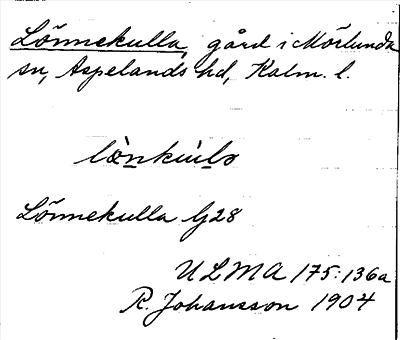 Lönnekulla, gård i Mörlunda
sn, Aspelands hd, Kalm. l.
Lönnekulla G28
ULMA 175:136a
R. Johansson 1904